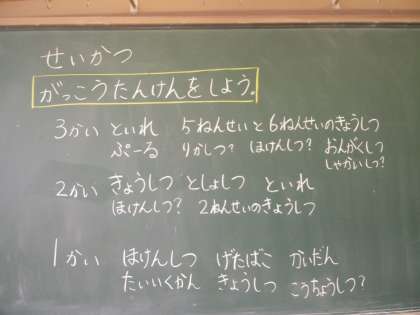 せいかつ
がっこうたんけんをしよう。
3かい といれ 5ねんせいと6ねんせいのきょうしつ
ぷーる りかしつ? ほけんしつ? おんがくしつ
しゃかいしつ?
2かい きょうしつ としょしつ といれ
ほけんしつ? 2ねんせいのきょうしつ
1かい ほけんしつ げたばこ かいだん
たいいくかん きょうしつ こうちょうしつ?